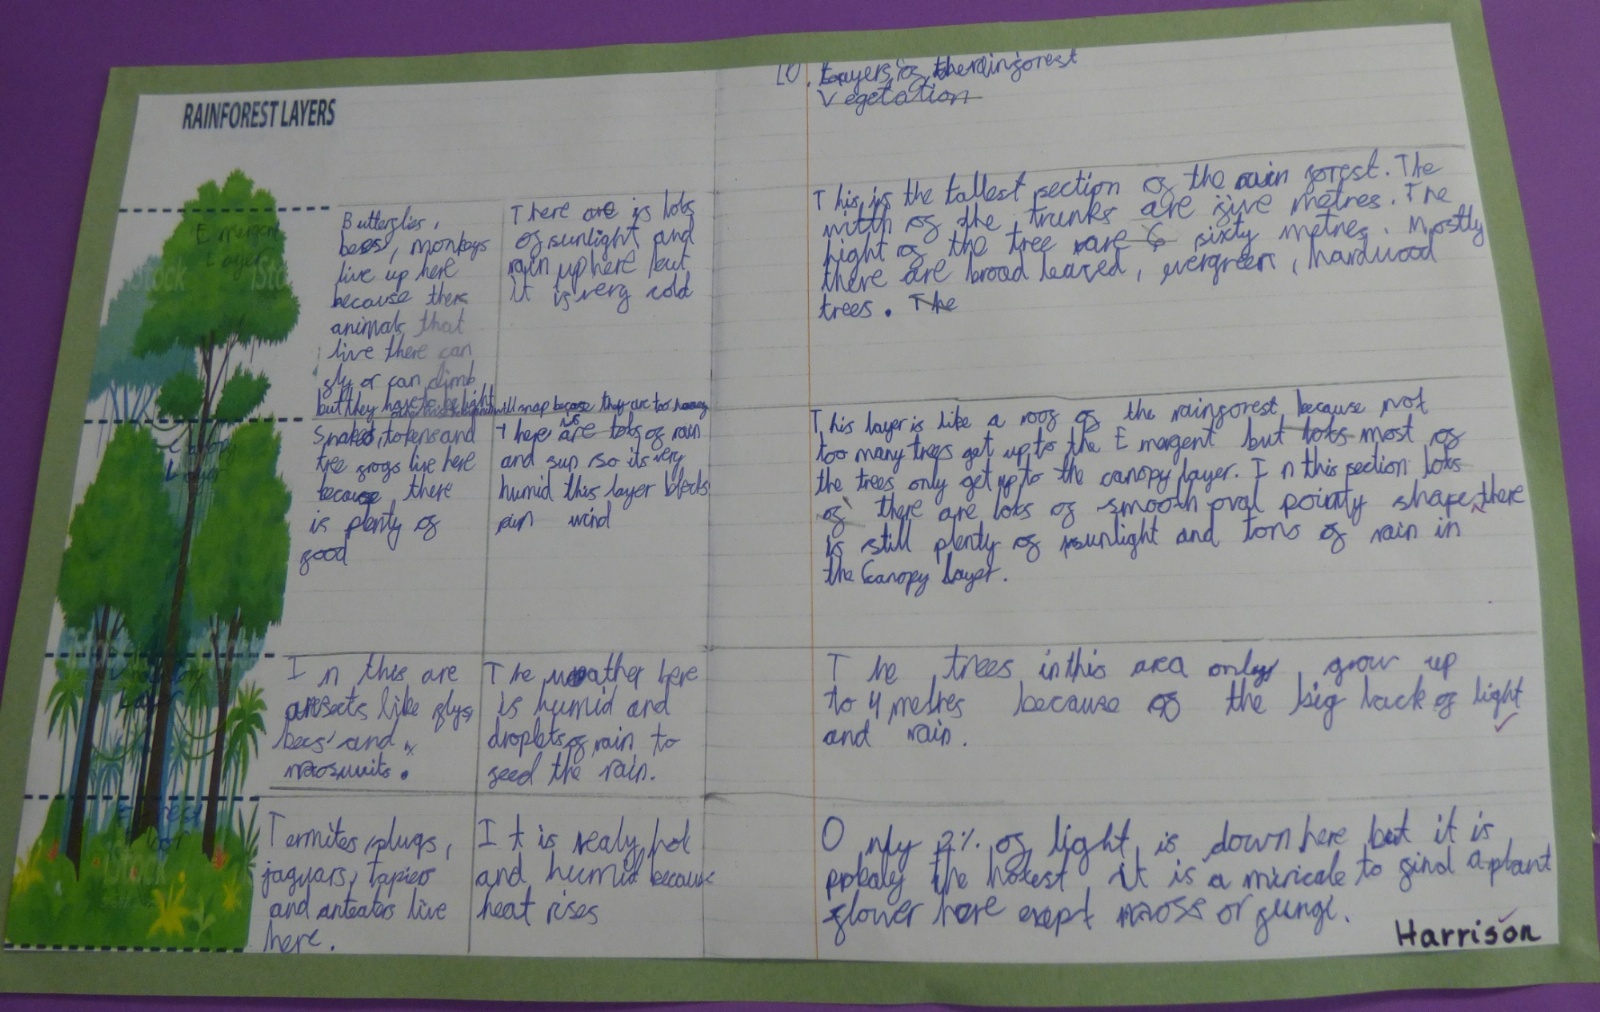 LO. Layers of the rainforest
Vegetation
RAINFOREST LAYERS
Emergent
Layer
Butterflies,
bees, monkeys
live up here
because there
animals that
live there can
fly or can climb
but they have to be light
will snap because they are too heavy
There are is lots
of sunlight and
rain up here but
it is very cold
This is the tallest section of the rain forest. The
width of the trunks are five metres. The
hight of the tree are 6 sixty metres. Mostly
there are broad leaved, evergreen, hardwood
trees. The
Canopy
Layer
Snakes, tokens and
tree frogs live here
because, there
is plenty of
food
There are lots of rain
and sun so its very
humid this layer blocks
rain wind
This layer is like a roof of the rainforest because not
too many trees get up to the Emargent but lots most of
the trees only get up to the canopy layer. In this section lots
of there are lots of smooth oval pointy shape, there
is still plenty of sunlight and tons of rain in
the Canopy Layer.
Layer
In this are
insects like flys,
bees and
mosuuits.
The weather here
is humid and
droplets of rain to
feed the rain.
The trees in this area only grow up
to 4 metres because of the big lack of light
and rain.
Forest
Floor
Termites, slugs,
jaguars, tapiers
and anteaters live
here.
It is realy hot
and humid because
heat rises
Only 2% of light is down here but it is
probaly the hotest, it is a miricale to find a plant
flower here exept moss or fungi.
Harrison
iStock
iStock
iStock